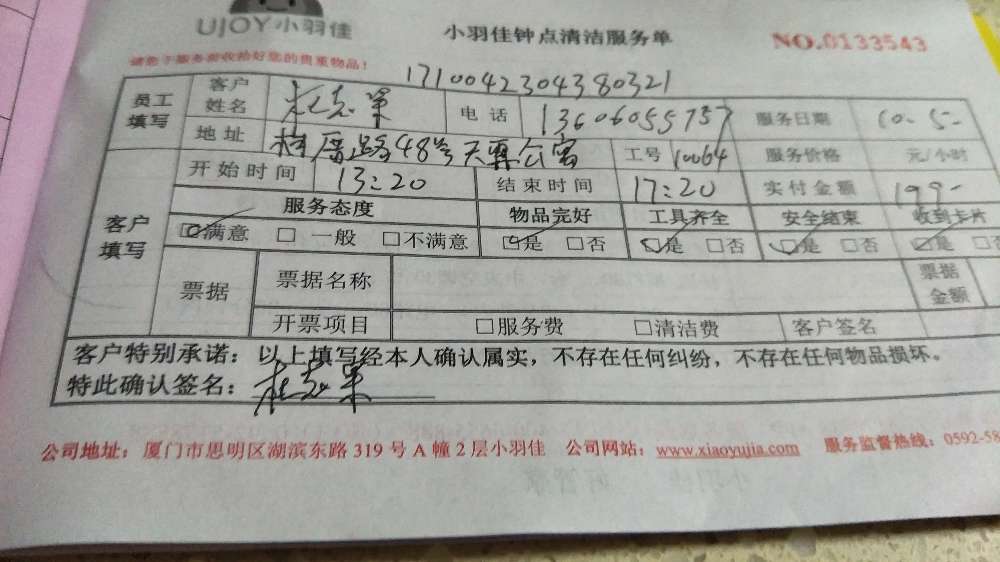 UJOY小羽佳
小羽佳钟点清洁服务单
NO.0133543
请您于服务前收拾好您的贵重物品！
1710042304380321
员工填写 客户姓名 电话 13606055757 服务日期 10.5
地址 48号天 公寓 工号 10064 服务价格 元/小时
客户填写 开始时间 13:20 结束时间 17:20 实付金额 199
服务态度 物品完好 工具齐全 安全结束 收到卡片
☑满意 □一般 □不满意 ☑是 □否 ☑是 □否 ☑是 □否 ☑是 □
票据 票据名称 票据金额
开票项目 □服务费 □清洁费 客户签名
客户特别承诺：以上填写经本人确认属实，不存在任何纠纷，不存在任何物品损坏。
特此确认签名：
公司地址：厦门市思明区湖滨东路319号A幢2层小羽佳 公司网站：www.xiaoyujia.com 服务监督热线：0592-58